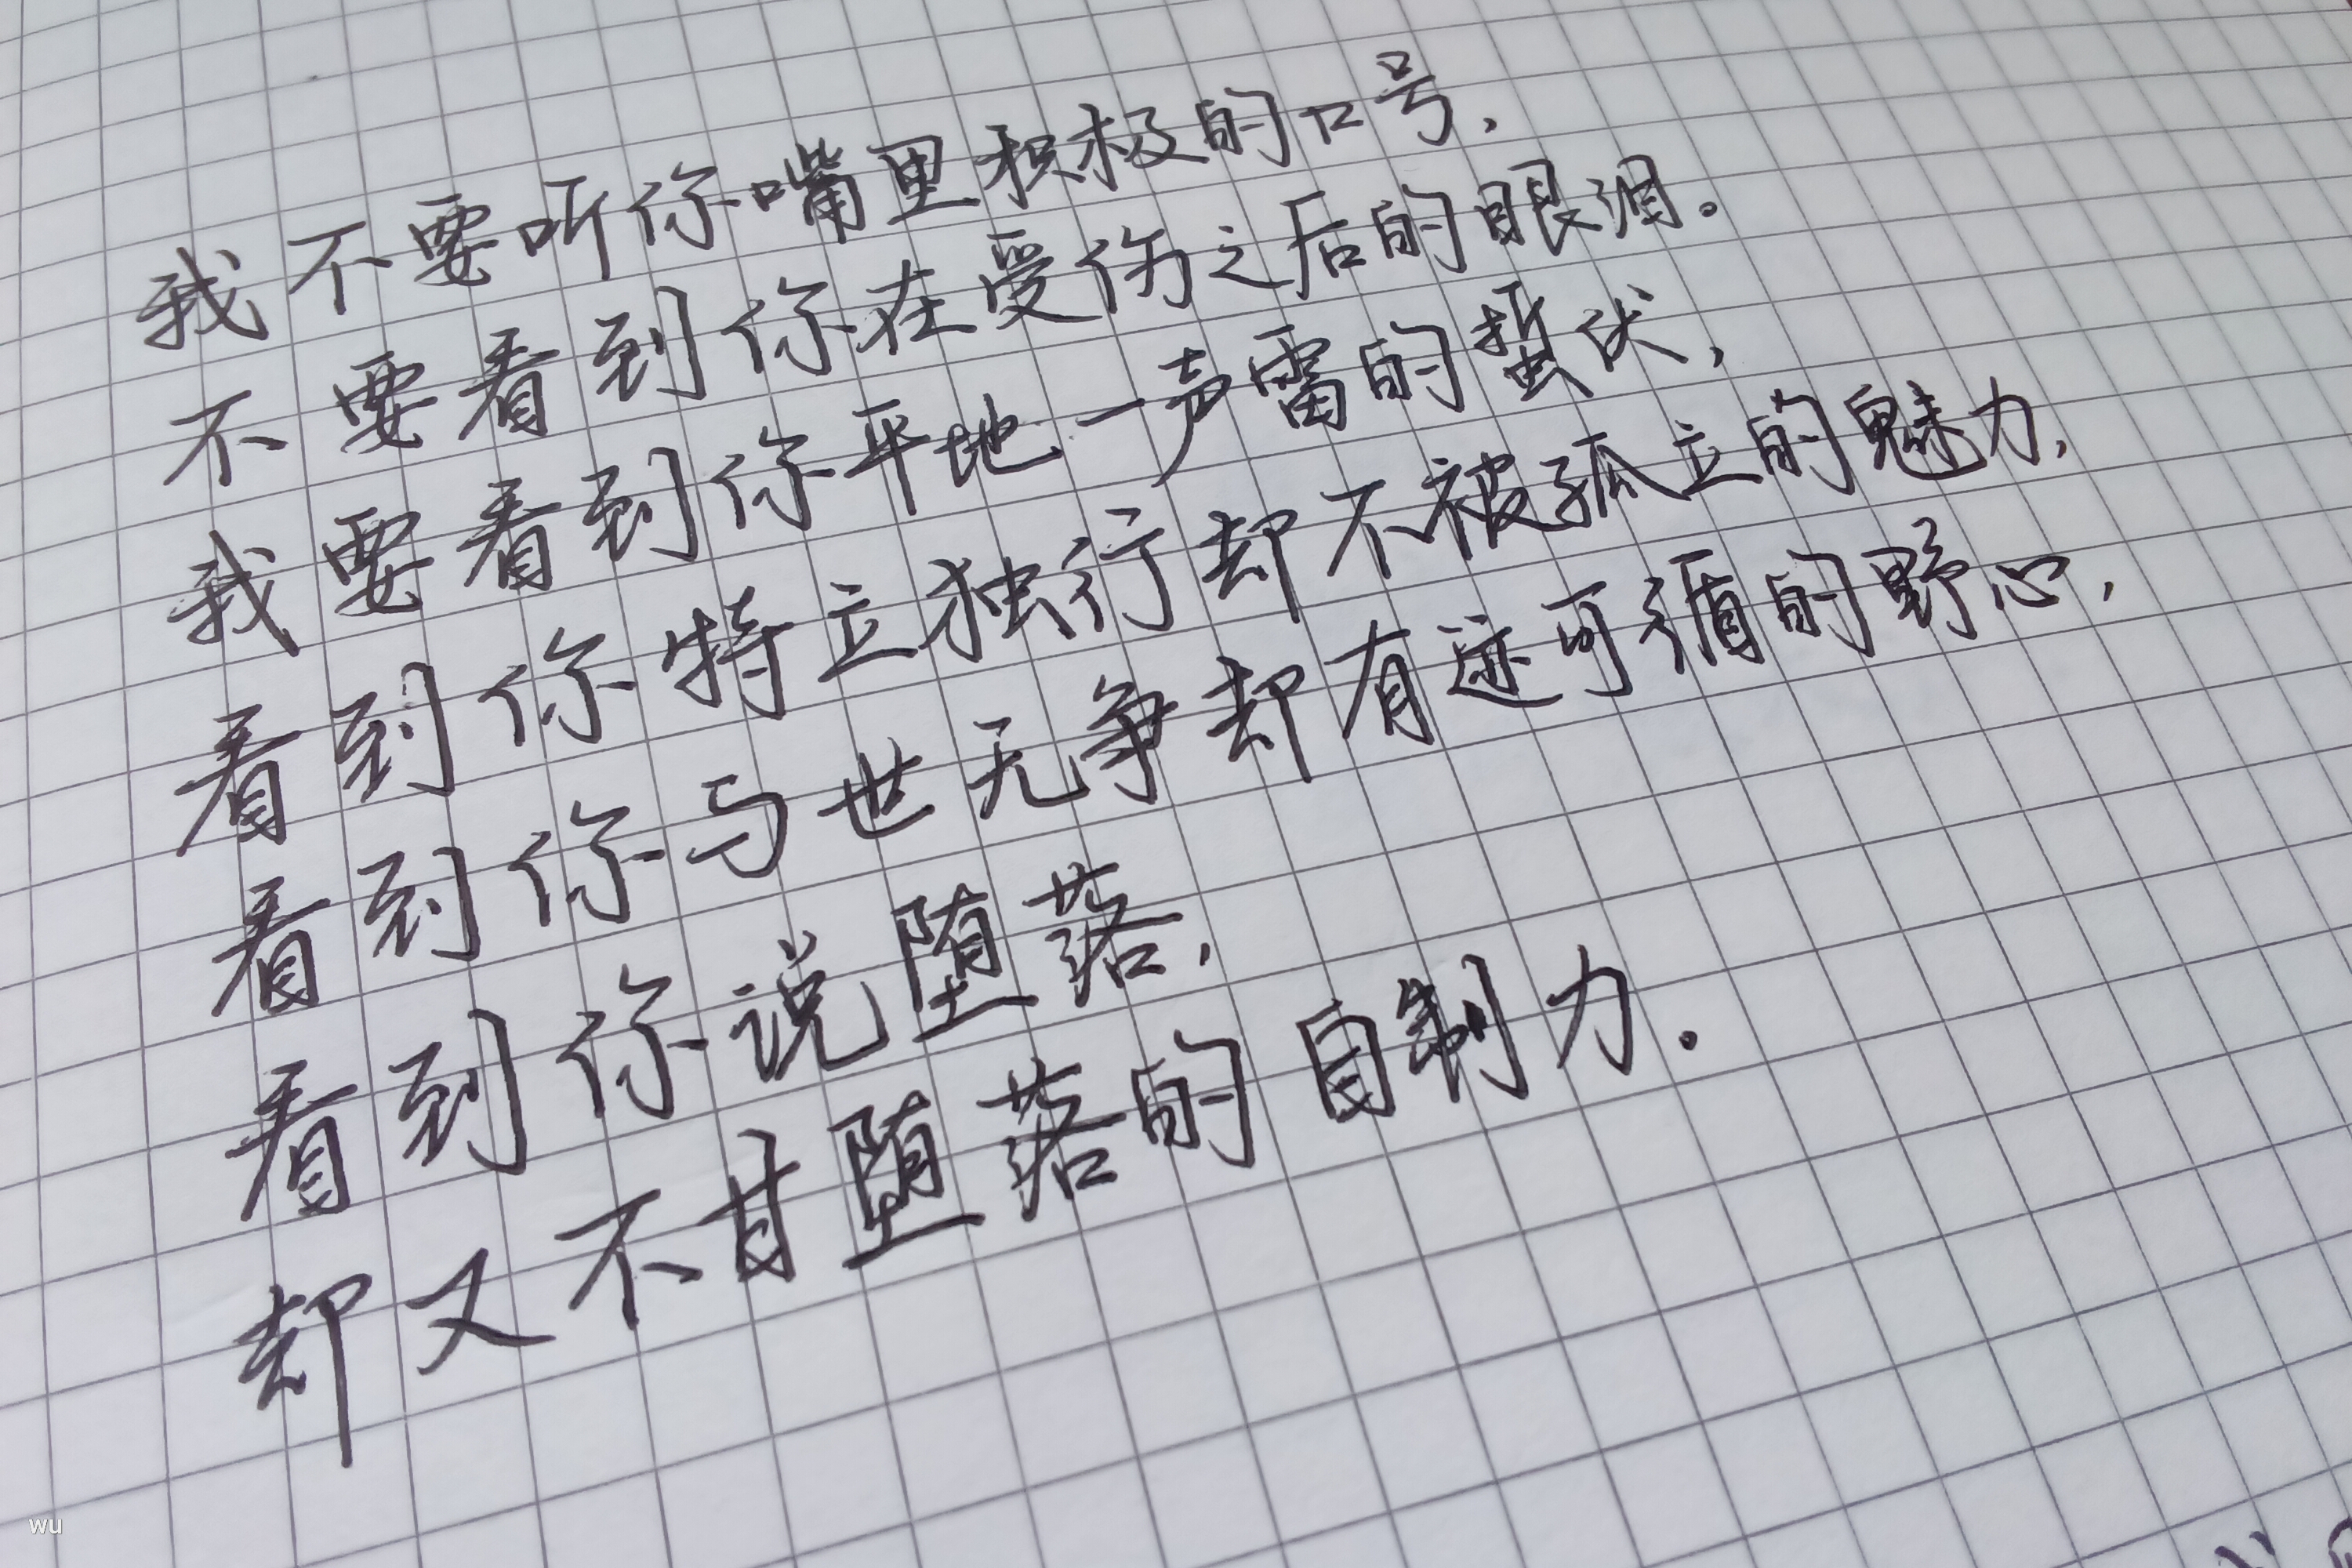 我不要听你嘴里积极的口号，
不要看到你在受伤之后的眼泪。
我要看到你平地一声雷的蜇伏，
看到你特立独行却不被孤立的魅力，
看到你与世无争却有迹可循的野心，
看到你说堕落，
却又不甘堕落的自制力.
wu